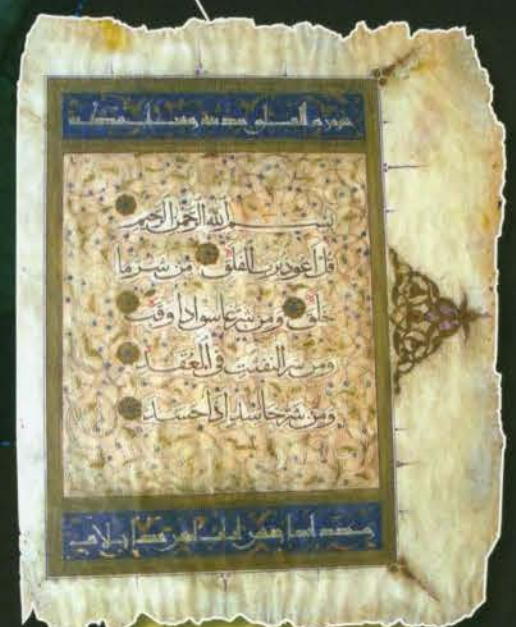 سورة الفلق مدنية وقيل مكية
بسم الله الرحمن الرحيم
قل أعوذ برب الفلق من شر ما
خلق ومن شر غاسق إذا وقب
ومن شر النفثت في العقد
ومن شر حاسد إذا حسد